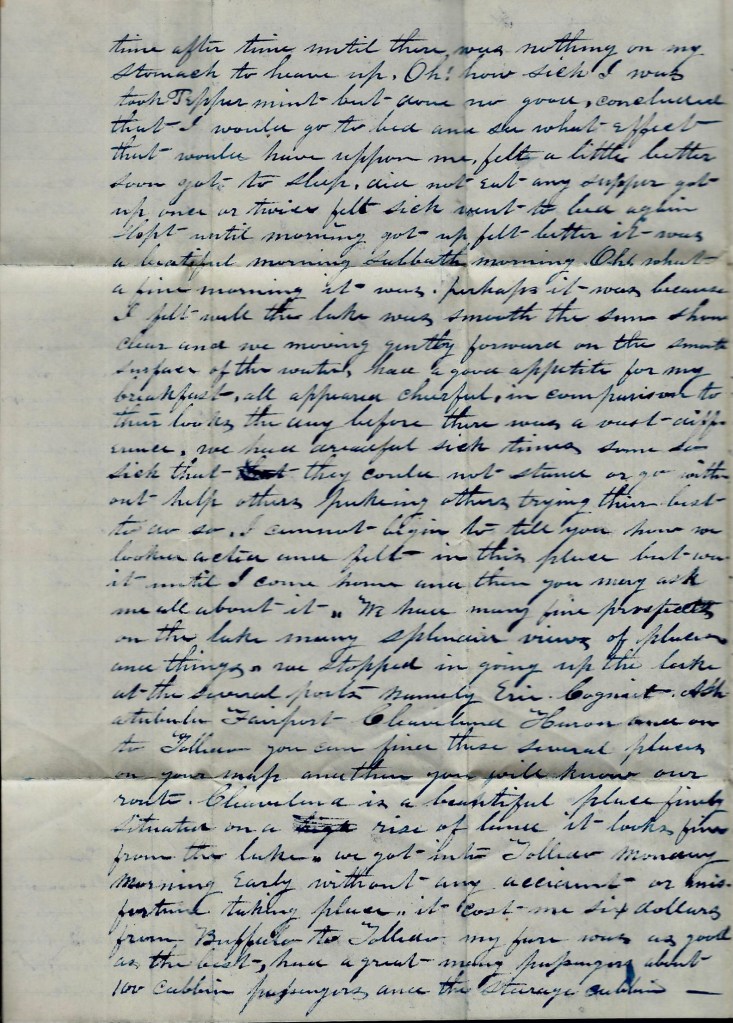 time after time until there was nothing on my
stomach to heave up. Oh! how sick I was
took Peppermint but done no good, concluded
that I would go to bed and see what effect
that would have uppon me, felt a little better
soon got to sleep. did not eat any supper got
up once or twice felt sick went to bed again
slept until morning got up felt better it was
a beatiful morning Sabbath morning Oh! what
a fine morning it was. perhaps it was because
I felt well the lake was smooth the sun shone
clear and we moving gently forward on the smooth
surface of the water, had a good appetite for my
breakfast, all appeared cheerful, in comparison to
their looks the day before there was a vast diff-
erence, we had dreadful sick times some so
sick that they could not stand or go with
out help others pukeing others trying their best
to do so. I cannot begin to tell you how we
looked acted and felt in this place but
it until I come home and then you may ask
me all about it. We had many fine prospects
on the lake many splendid views of places
and things. we stopped in going up the lake
at the several ports namely Erie. Ash
atabula Fairport Cleaveland Huron and on
to Tolledo you can find these several places
on your map and then you will know our
route. Cleaveland is a beautiful place finely
situated on a high rise of land it looks fine
from the lake. we got into Tolledo monday
morning Early without any accident or mis-
fortune taking place. it cost me six dollars
from Buffalo to Tolledo my fare was as good
as the best, had a great many passengers about
100 cabbin passengers and the stearage cabbin —